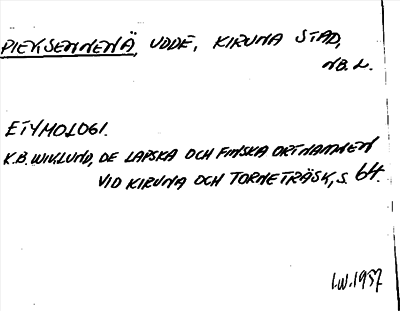 PIEKSENNENÄ, UDDE, KIRUNA STAD,
NB. L.
ETYMOLOGI.
K.B. WIKLUND, DE LAPSKA OCH FINSKA ORTNAMNEN
VID KIRUNA OCH TORNETRÄSK, S. 64.
I.W. 1957